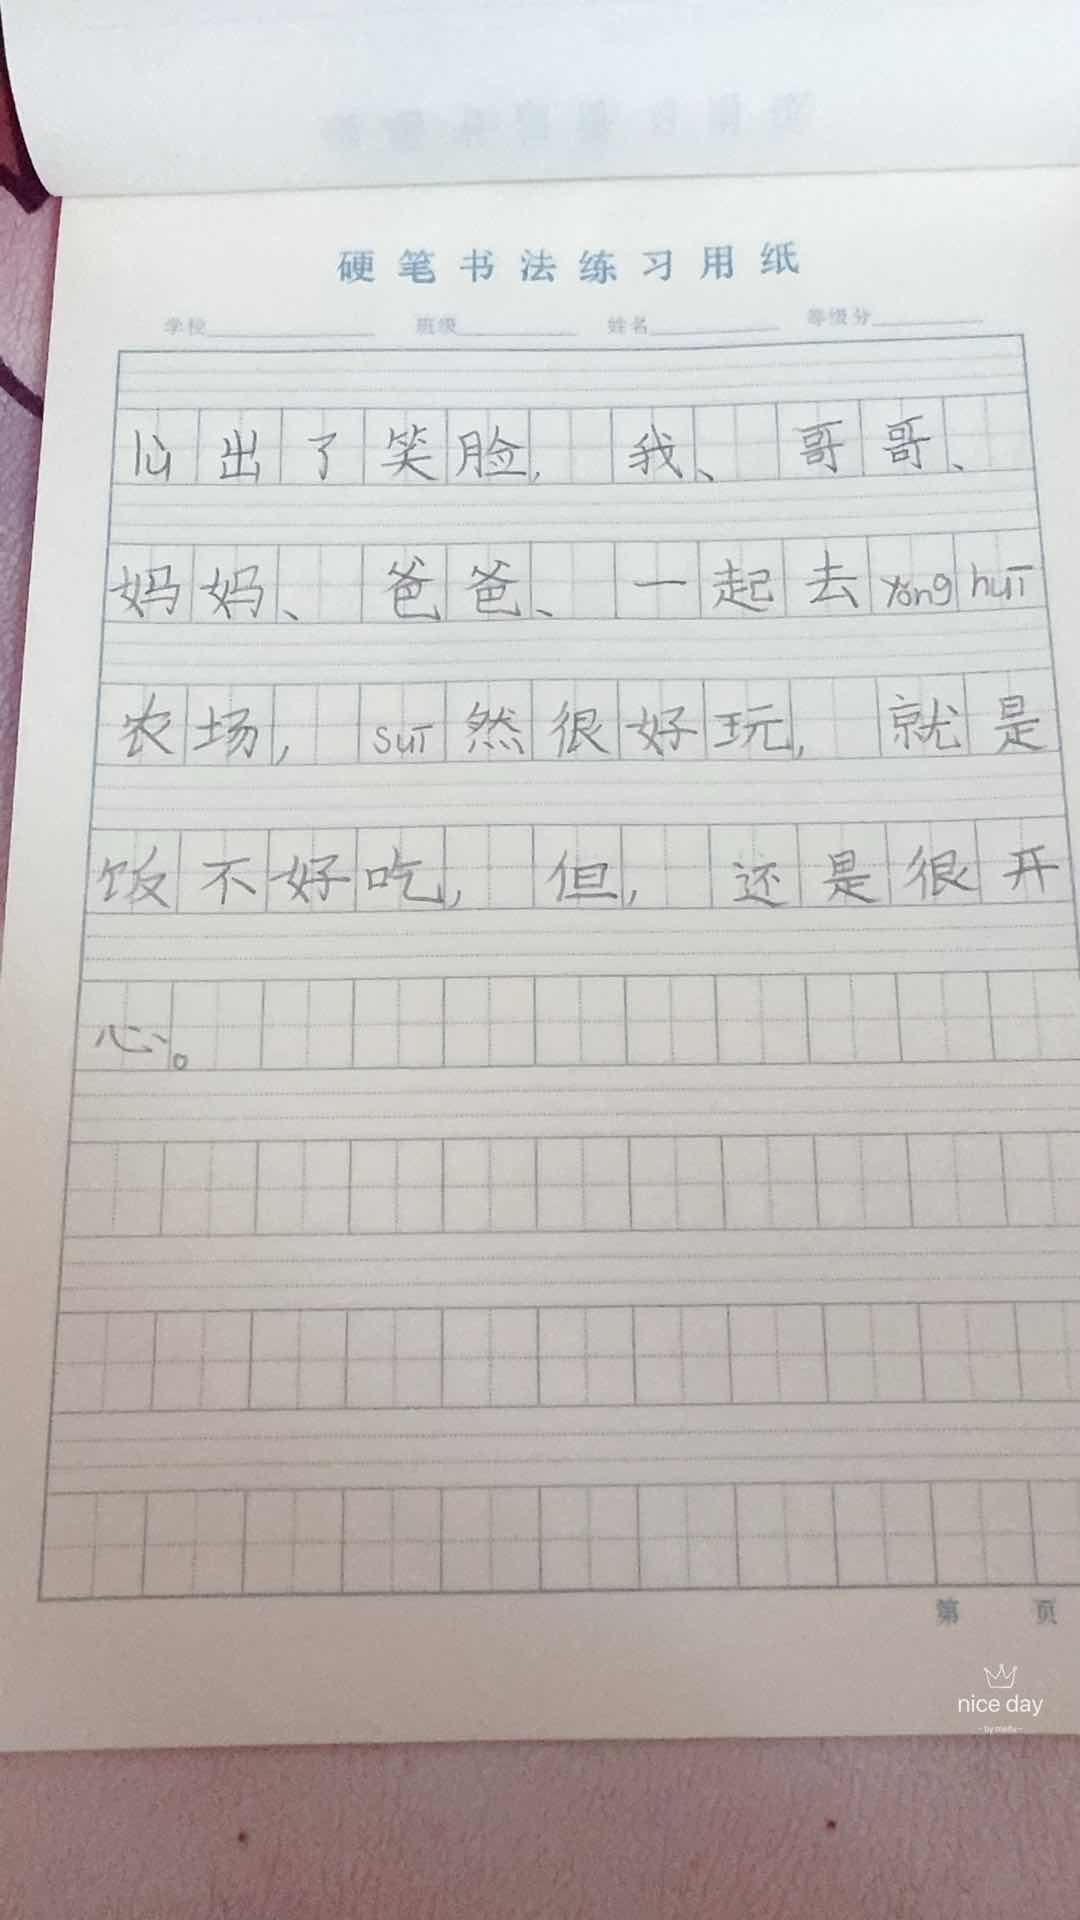 硬笔书法练习用纸
学校 班级 姓名 等级分
lù出了笑脸,我、哥哥、
妈妈、爸爸、一起去yǒng huī
农场,suī然很好玩,就是
饭不好吃,但,还是很开
心。
第 页
nice day
- by meitu -